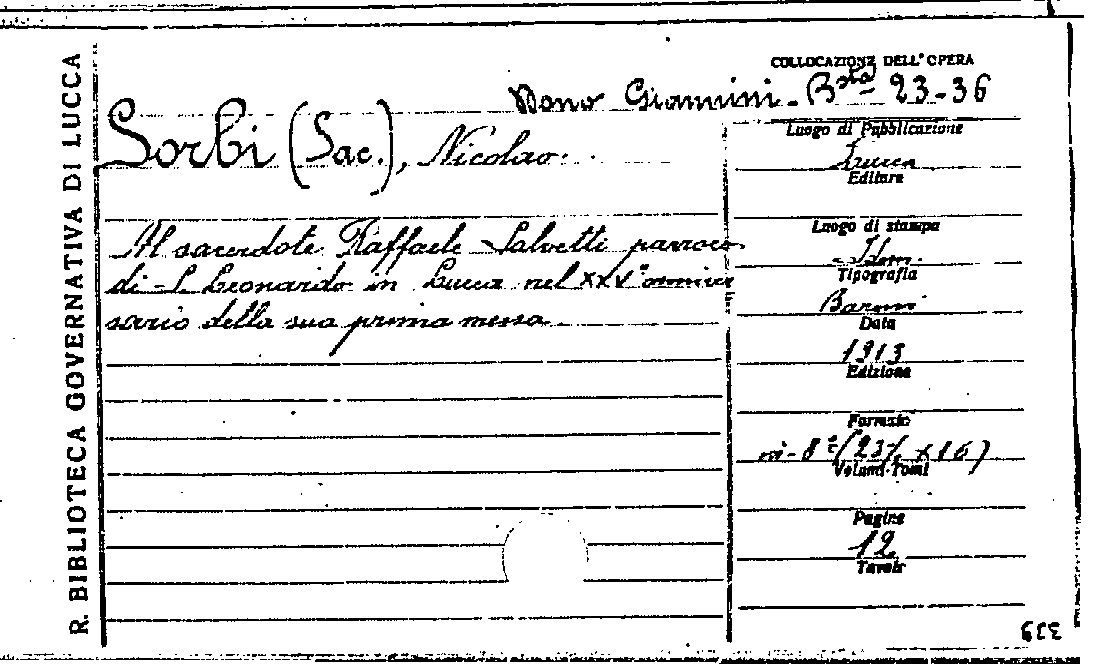 R. BIBLIOTECA GOVERNATIVA DI LUCCA
COLLOCAZIONE DELL'OPERA
Dono Giannini - Bsta 23-36
Sorbi (Sac.), Nicolao.
Al sacerdote Raffaele Salvetti parroco
di S. Leonardo in Lucca nel XXV° anniver
sario della sua prima messa
Luogo di Pubblicazione
Lucca
Editore
Luogo di stampa
Idem
Tipografia
Baroni
Data
1913
Edizione
Formato
in-8° (23½ x 16)
Volumi-Tomi
Pagine
12
Tavole
339